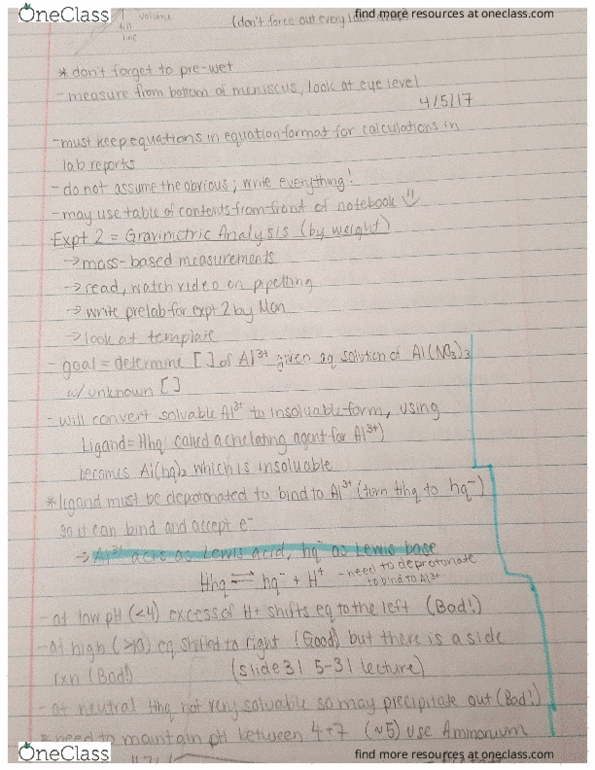 OneClass
find more resources at oneclass.com
volume
(don't force out every
* don't forget to pre-wet
- measure from bottom of meniscus, look at eye level
4/5/17
- must keep equations in equation-format for calculations in
lab reports
- do not assume the obvious; write everything!
- may use table of contents from front of notebook
Expt 2 = Gravimetric Analysis (by weight)
→ mass-based measurements
→ read, watch video on pipetting
→ write prelab for expt 2 by Mon
→ look at template
- goal = determine [ ] of Al³⁺ given aq solution of Al(NO₃)₃
w/ unknown [ ]
- will convert soluable Al³⁺ to insoluable form, using
Ligand = Hhq called a chelating agent for Al³⁺)
becomes Al(hq)₃ which is insoluable
* ligand must be deprotonated to bind to Al³⁺ (turn Hhq to hq⁻)
so it can bind and accept e⁻
→ Al³⁺ acts as Lewis acid, hq⁻ as Lewis base
Hhq ⇌ hq⁻ + H⁺ - need to deprotonate
to bind to Al³⁺
- at low pH (<4) excess of H+ shifts eq to the left (Bad!)
- at high (>10) eq shifted to right (Good) but there is a side
rxn (Bad!) (slide 31 5-31 lecture)
- at neutral Hhq not very soluable so may precipitate out (Bad!)
* need to maintain pH between 4+7 (~5) use Ammonium
OneClass
find more resources at oneclass.com